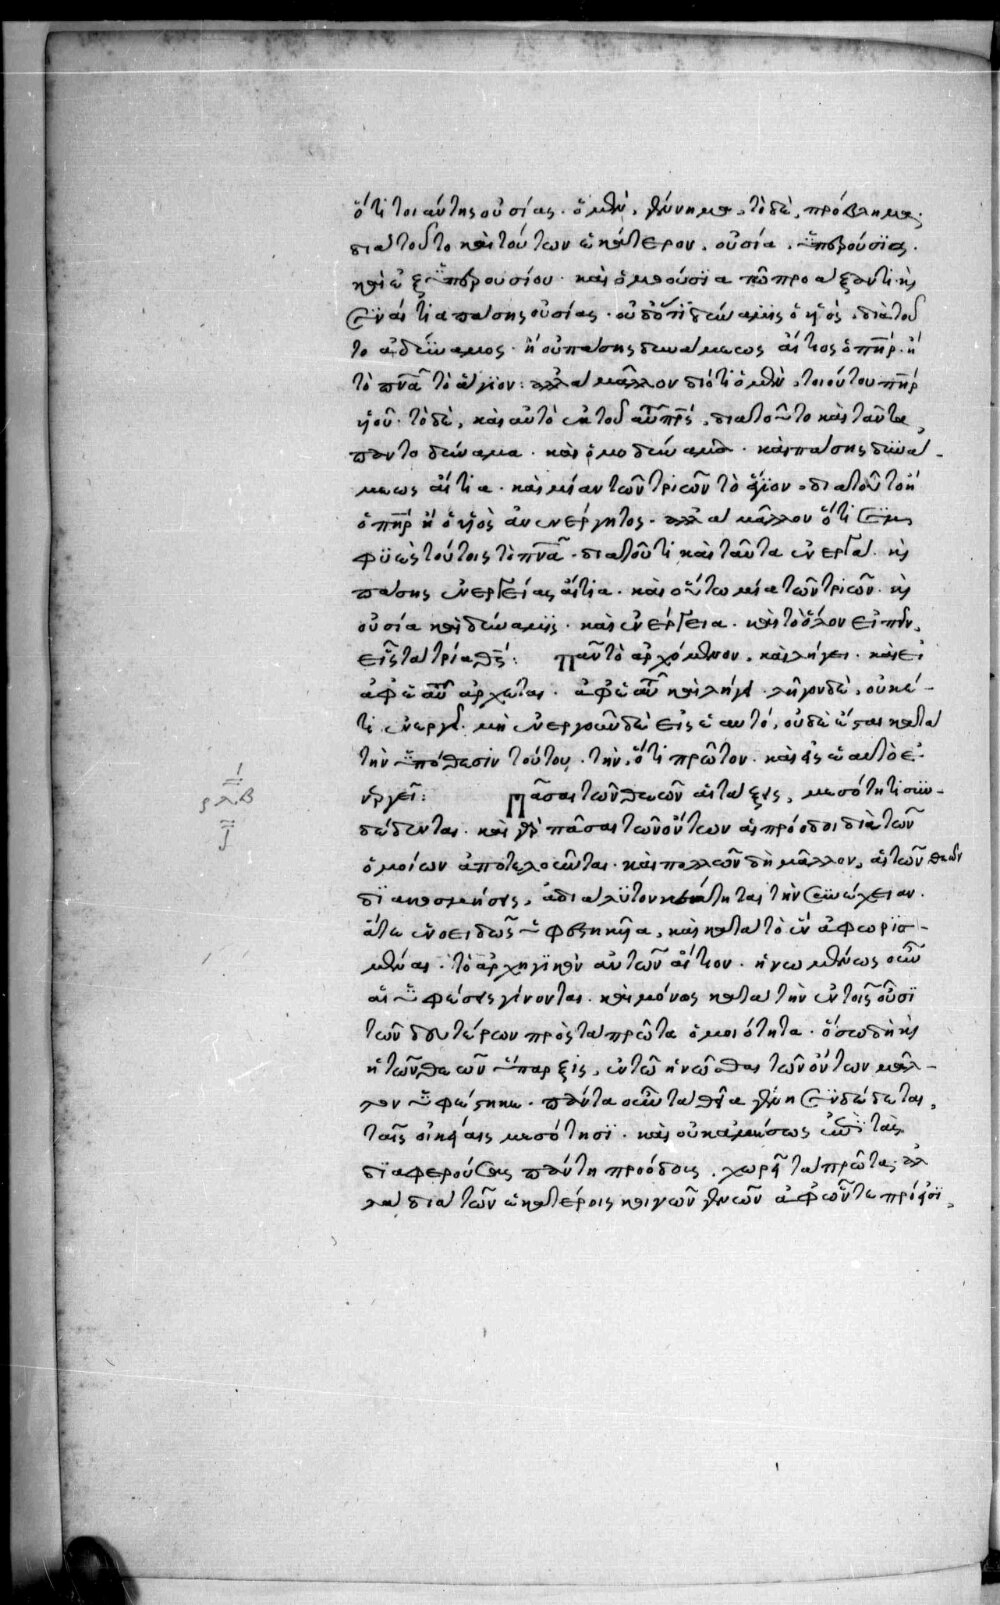 ὅτι τοιαύτης οὐσίας. ὁ μὲν, γέννημα. τὸ δὲ, πρόβλημα.
διατοῦτο καὶ τούτων ἑκάτερον. οὐσία. ὑπερούσιος.
καὶ ἐξ ὑπερουσίου. καὶ ὁμοούσια τῶ προαχθέντι κς
αἰτία πάσης οὐσίας. οὐδ' ὅτι δύναμις ὁ υἱὸς, διὰ τοῦ
το ἀδύναμος. ἢ οὐ πάσης δυνάμεως αἴτιος ὁ πηρ. ἢ
τὸ πνα τὸ ἅγιον: ἀλλὰ μᾶλλον διότι ὁ μὲν, τοιούτου πηρ
υἱοῦ. τὸ δὲ, καὶ αὐτὸ ἐκ τοῦ αὐτοῦ πρς, διατοῦτο καὶ ταῦτα,
παντοδύναμα. καὶ ὁμοδύναμα. καὶ πάσης δυνά-
μεως αἴτια. καὶ μίαν τῶν τριῶν τὸ ἅγιον. διατοῦτο ἢ
ὁ πηρ ἢ ὁ υἱὸς ἀνενέργητος. ἀλλὰ μᾶλλον ὅτι συμ
φυὲς τούτοις τὸ πνα. διατοῦτο καὶ ταῦτα ἐνεργὰ. κς
πάσης ἐνεργείας αἴτια. καὶ οὕτω μία τῶν τριῶν. κς
οὐσία καὶ δύναμις. καὶ ἐνέργεια. καὶ τὸ ὅλον εἰπεῖν,
εἷς τὰ τρία θς: Πᾶν τὸ ἀρχόμενον, καὶ λήγει. καὶ εἰ
ἀφ' ἑαυτοῦ ἄρχεται. ἀφ' ἑαυτοῦ καὶ λήγει. λῆγον δὲ, οὐκέ-
τι ἐνεργεῖ. μὴ ἐνεργοῦν δὲ εἰς ἑαυτό, οὐδὲ ἔσται κατὰ
τὴν ὑπόθεσιν τούτου. τὴν, ὅτι πρῶτον. καὶ εἰς ἑαυτὸ ἐ
νεργεῖ: Πᾶσαι τῶν θεῶν αἱ τάξεις, μεσότητι συν-
ρλβ
δέδενται. καὶ γὰρ πᾶσαι τῶν ὄντων αἱ πρόοδοι διὰ τῶν
ὁμοίων ἀποτελοῦνται. καὶ πολλῶ δὴ μᾶλλον, αἱ τῶν θεῶν
διακοσμήσεις, ἀδιάλυτον κέκτηνται τὴν συνέχειαν.
ἅτε ἑνοειδῶς ὑφεστηκυῖαι, καὶ κατὰ τὸ ἓν ἀφωρισ-
μέναι. τὸ ἀρχηγικὸν αὐτῶν αἴτιον. ἡνωμένως οὖν
αἱ ὑφέσεις γίνονται. καὶ μόνως κατὰ τὴν ἐν τοῖς οὖσι
τῶν δευτέρων πρὸς τὰ πρῶτα ὁμοιότητα. ὅσω δὴ κς
ἡ τῶν θεῶν ὕπαρξις, ἐν τῶ ἡνῶσθαι τῶν ὄντων μᾶλ-
λον ὑφέστηκε. πάντα οὖν τὰ θεῖα γένη συνδέδεται,
ταῖς οἰκείαις μεσότησι. καὶ οὐκ ἀμέσως ἐπὶ τὰς
διαφερούσας πάντη προόδους. χωρεῖ τὰ πρῶτα. ἀλ
λὰ διὰ τῶν ἑκατέροις κοινῶν γενῶν ἀφ' ὧν τε πρόεισι,